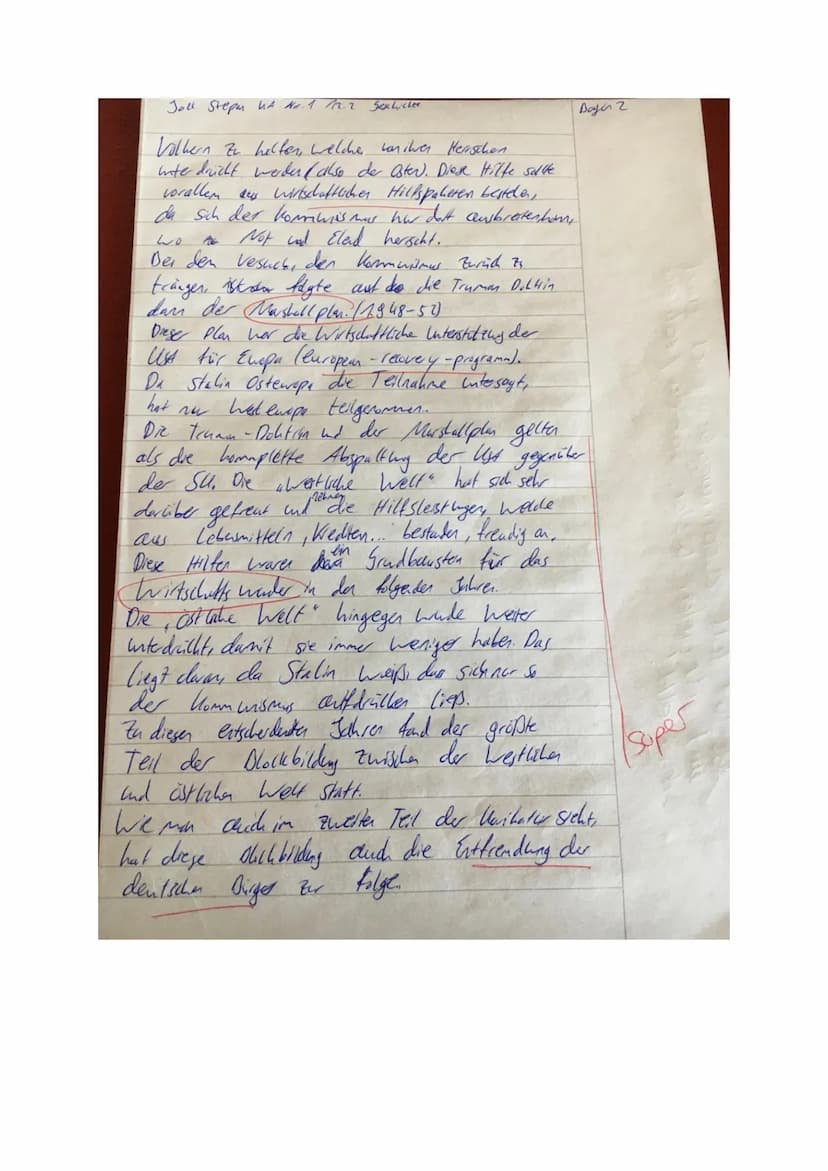 KA Nr. 1 12.2 Geschichte Bogen 2
Völkern zu helfen, welche von ihren Menschen
unterdrückt werden (also der Osten). Diese Hilfe sollte
vorallem aus wirtschaftlichen Hilfspaketen bestehen,
da sich der Kommunismus nur dort ausbreiten kann,
wo Not und Elend herscht.
Bei dem Versuch, den Kommunismus zurück zu
trängen, folgte auf die Truman Doktrin
dann der Marshallplan. (1948-52)
Dieser Plan war die Wirtschaftliche Unterstützung der
USA für Europa (european-recovery-programm).
Da Stalin Osteuropa die Teilnahme untersagt,
hat nur Westeuropa teilgenommen.
Die Truman-Doktrin und der Marshallplan gelten
als die kommplette Abspaltung der USA gegenüber
der SU. Die „westliche Welt" hat sich sehr
darüber gefreut und nehmen die Hilfsleistungen, welche
aus Lebensmitteln, Krediten... bestanden, freudig an.
Diese Hilfen waren ein Grundbaustein für das
Wirtschaftswunder in den folgenden Jahren.
Die „östliche Welt" hingegen wurde weiter
unterdrückt, damit sie immer weniger haben. Das
liegt daran, da Stalin weiß, das sich nur so
der Kommunismus aufdrücken ließ.
Zu diesen entscheidenten Jahren fand der größte
Teil der Blockbildung zwischen der westlichen
und östlichen Welt statt.
super
Wie man auch im zweiten Teil der Karikatur sieht,
hat diese Blockbildung auch die Entfremdung der
deutschen Bürger zur Folge.